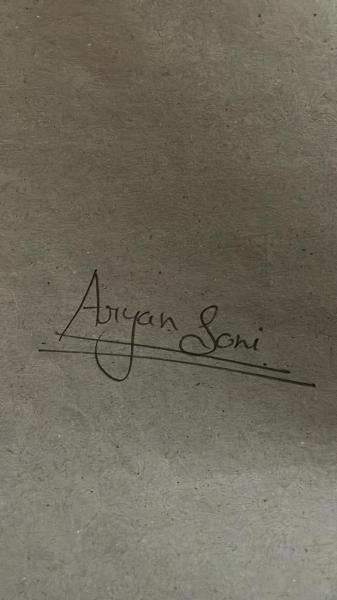 Aryan Soni